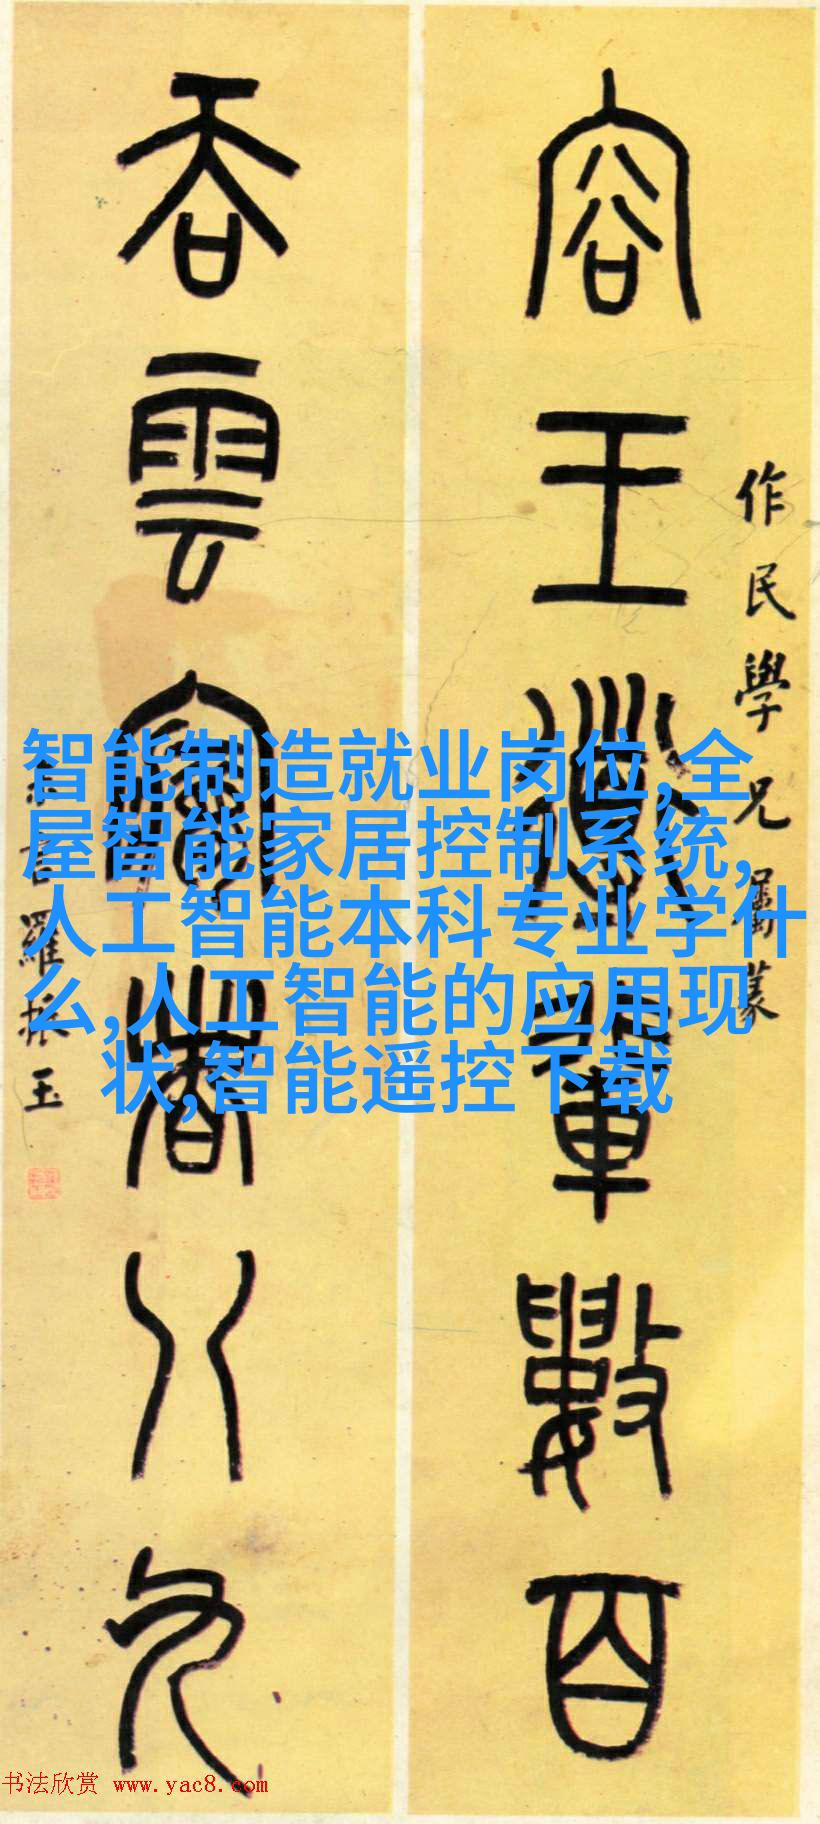 容王導輩數百
作民學兄屬篆
吞雲夢者八九
羅振玉
智能制造就业岗位,全
屋智能家居控制系统,
人工智能本科专业学什
么,人工智能的应用现
状,智能遥控下载
书法欣赏 www.yac8.com